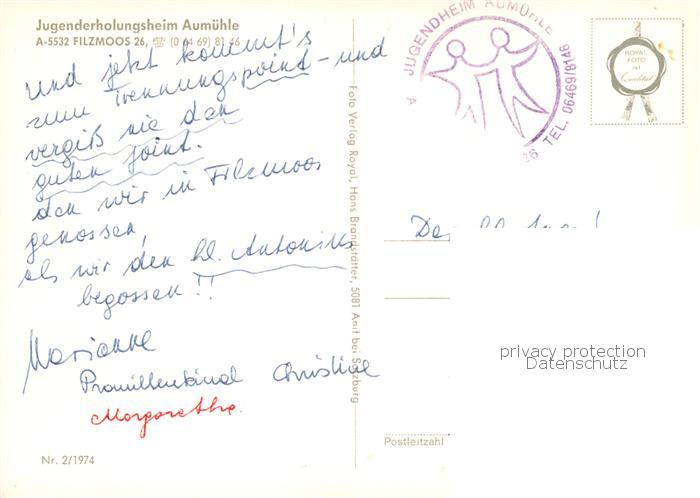 Jugenderholungsheim Aumühle
A-5532 FILZMOOS 26, ☏ (0 64 69) 81 46
Und jetzt kommt's
zum Trennungspoint - und
vergiß nie den
guten Joint.
den wir in Filzmoos
genossen,
als wir den hl. Antonius
begossen!!
Marianne
Promillenkind Christine
Margarethe.
Nr. 2/1974
Foto Verlag Royal, Hans Brandstätter, 5081 Anif bei Salzburg
A JUGENDHEIM AUMÜHLE
26 TEL. 06469/8146
ROYAL
FOTO
ist
Qualität
privacy protection
Datenschutz
Postleitzahl